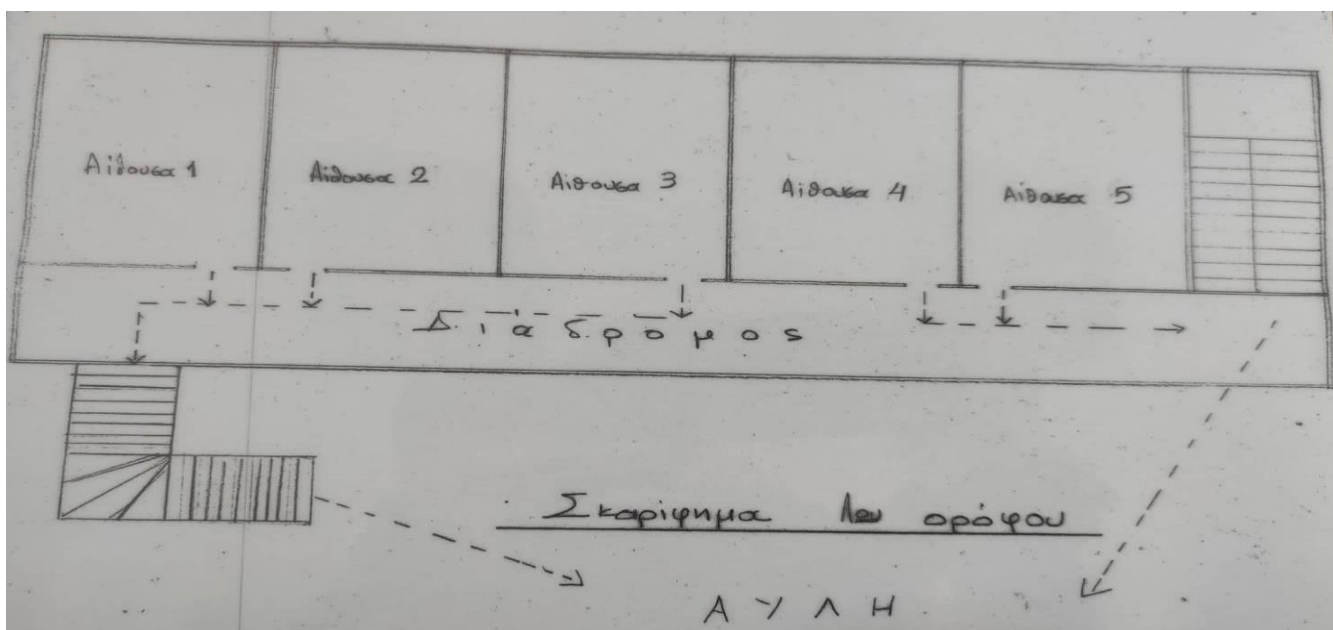 Αίθουσα 1
Αίθουσα 2
Αίθουσα 3
Αίθουσα 4
Αίθουσα 5
Διάδρομος
Σκαρίφημα 1ου ορόφου
ΑΥΛΗ